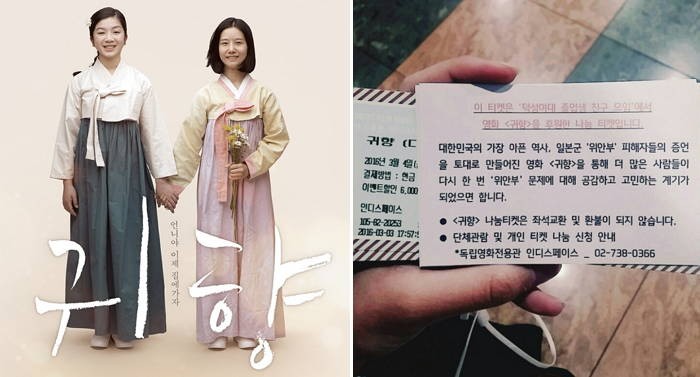 언니야 이제 집에가자
귀향
귀향
2016년 3월
결제방법 : 현금
이벤트할인 6,000
인디스페이스
105-82-20253
2016-03-03 17:57:5
이 티켓은 '덕성여대 졸업생 친구 모임'에서
영화 <귀향>을 후원한 나눔 티켓입니다.
대한민국의 가장 아픈 역사, 일본군 '위안부' 피해자들의 증언
을 토대로 만들어진 영화 <귀향>을 통해 더 많은 사람들이
다시 한 번 '위안부' 문제에 대해 공감하고 고민하는 계기가
되었으면 합니다.
● <귀향> 나눔티켓은 좌석교환 및 환불이 되지 않습니다.
● 단체관람 및 개인 티켓 나눔 신청 안내
*독립영화전용관 인디스페이스 _ 02-738-0366